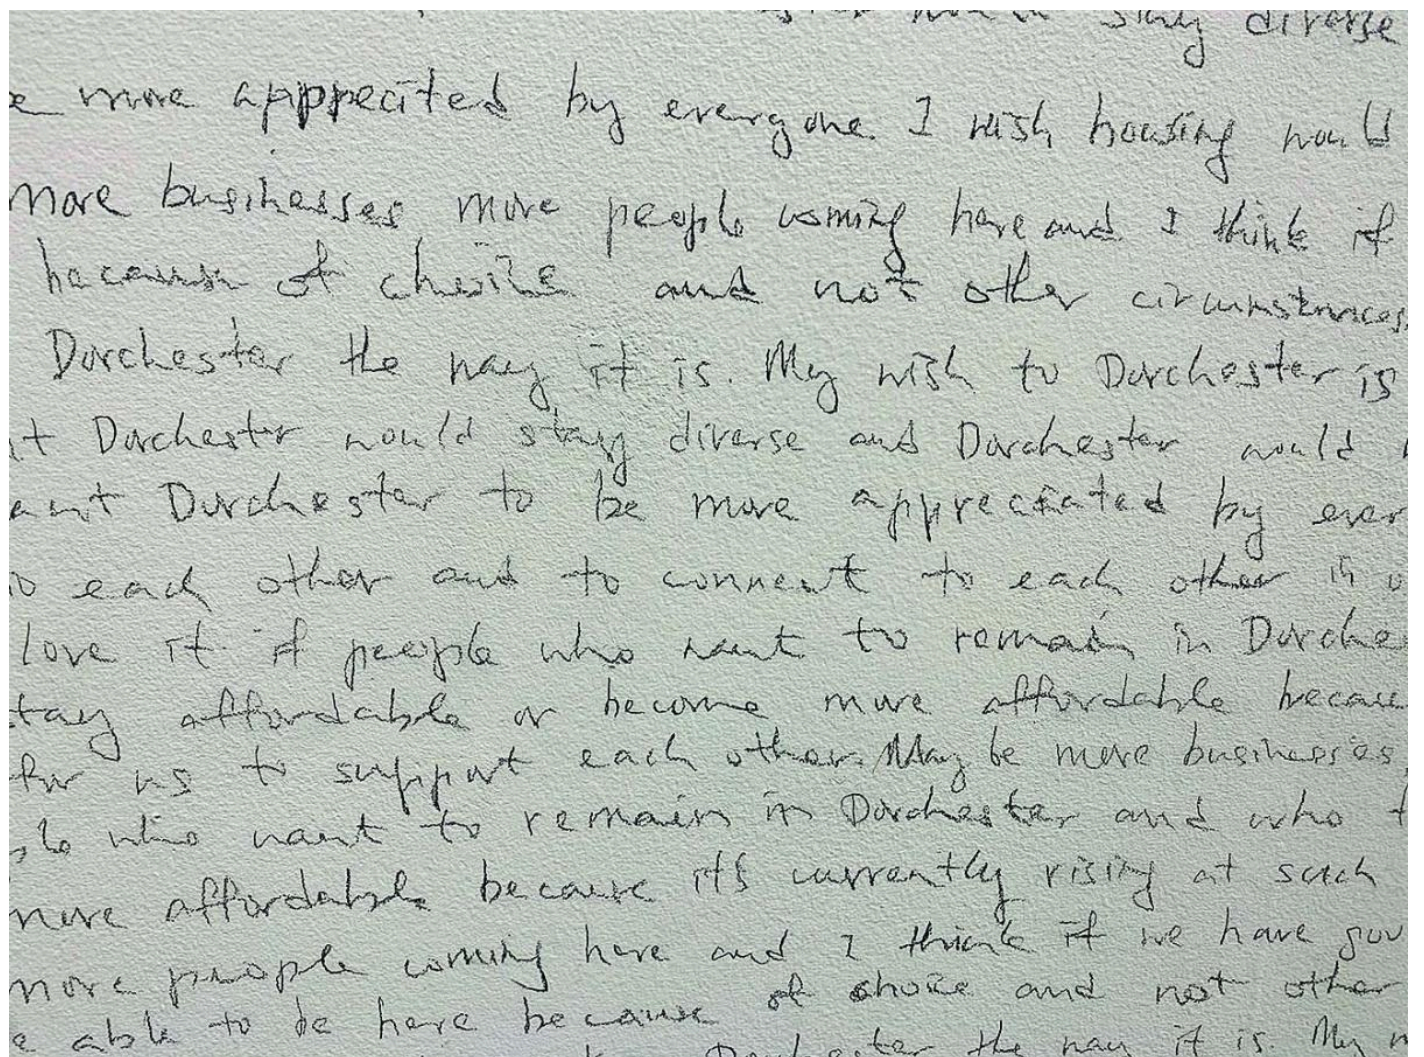 stay diverse
more apprecited by everyone. I wish housing would
more businesses more people coming here and I think if
because of choice and not other circumstances
Dorchester the way it is. My wish to Dorchester is
Dorchester would stay diverse and Dorchester would
want Dorchester to be more appreciated by ever
to each other and to connect to each other in
love it if people who want to remain in Dorche
tay affordable or become more affordable becau
for us to support each other. May be more businesses,
ple who want to remain in Dorchester and who
more affordable because it's currently rising at such
more people coming here and I think if we have gov
e able to be here because of choice and not other
Dorchester the way it is. My